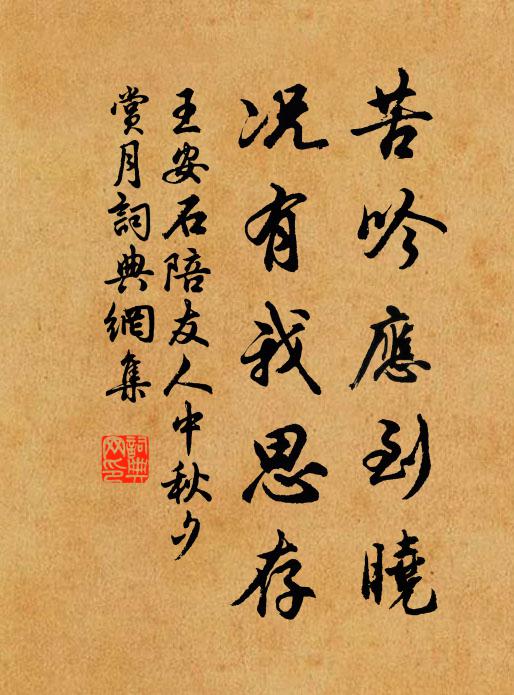 苦吟應到曉
況有我思存
王安石陪友人中秋夕
賞月詞典網集
詞典
网印